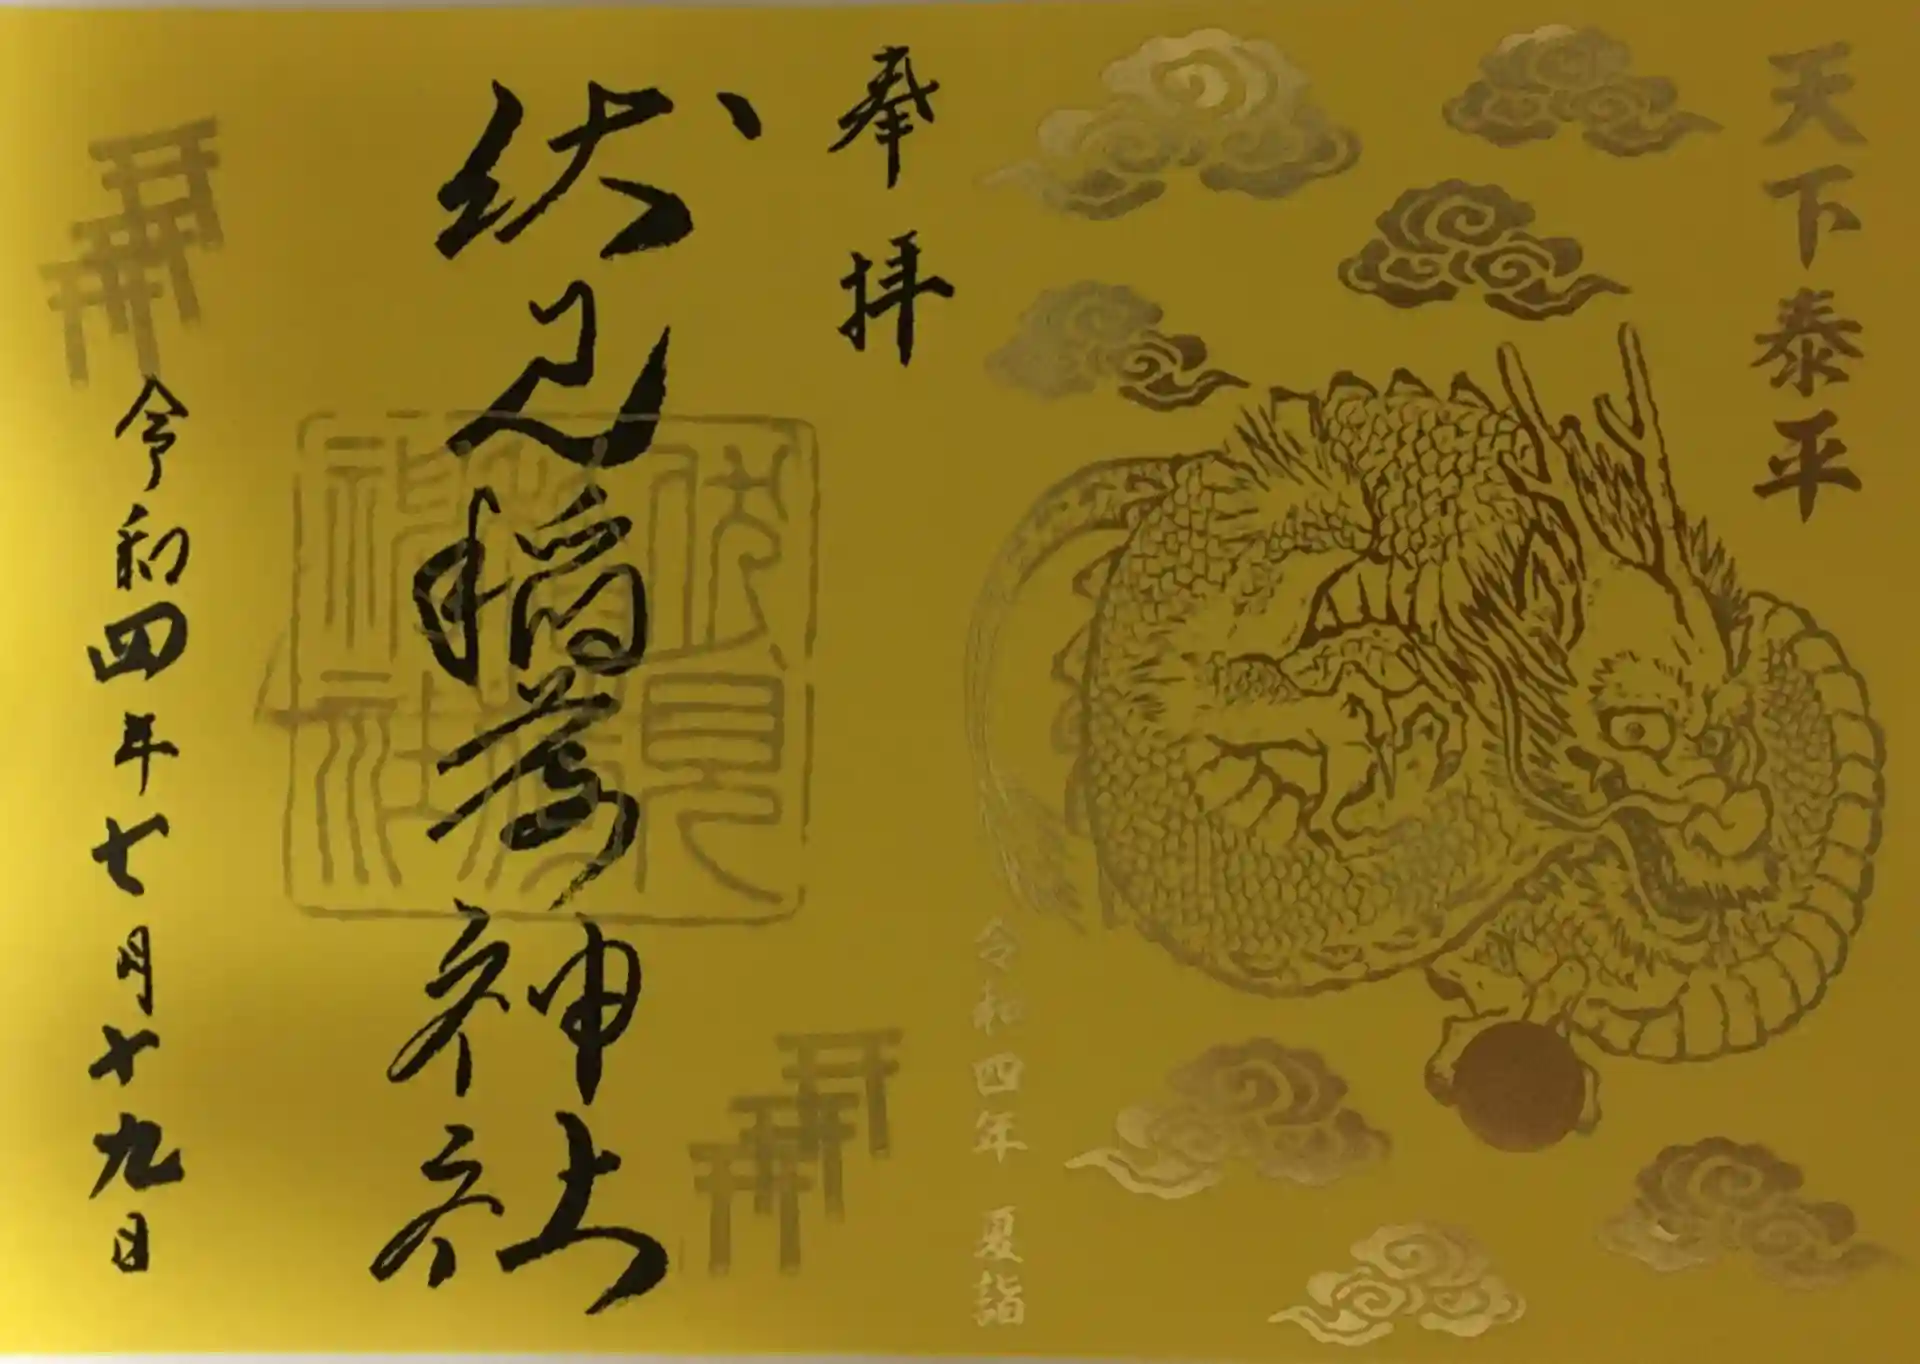 天下泰平
令和四年 夏詣
奉拝
伏見稲荷神社
伏見稲荷神社
令和四年七月十九日